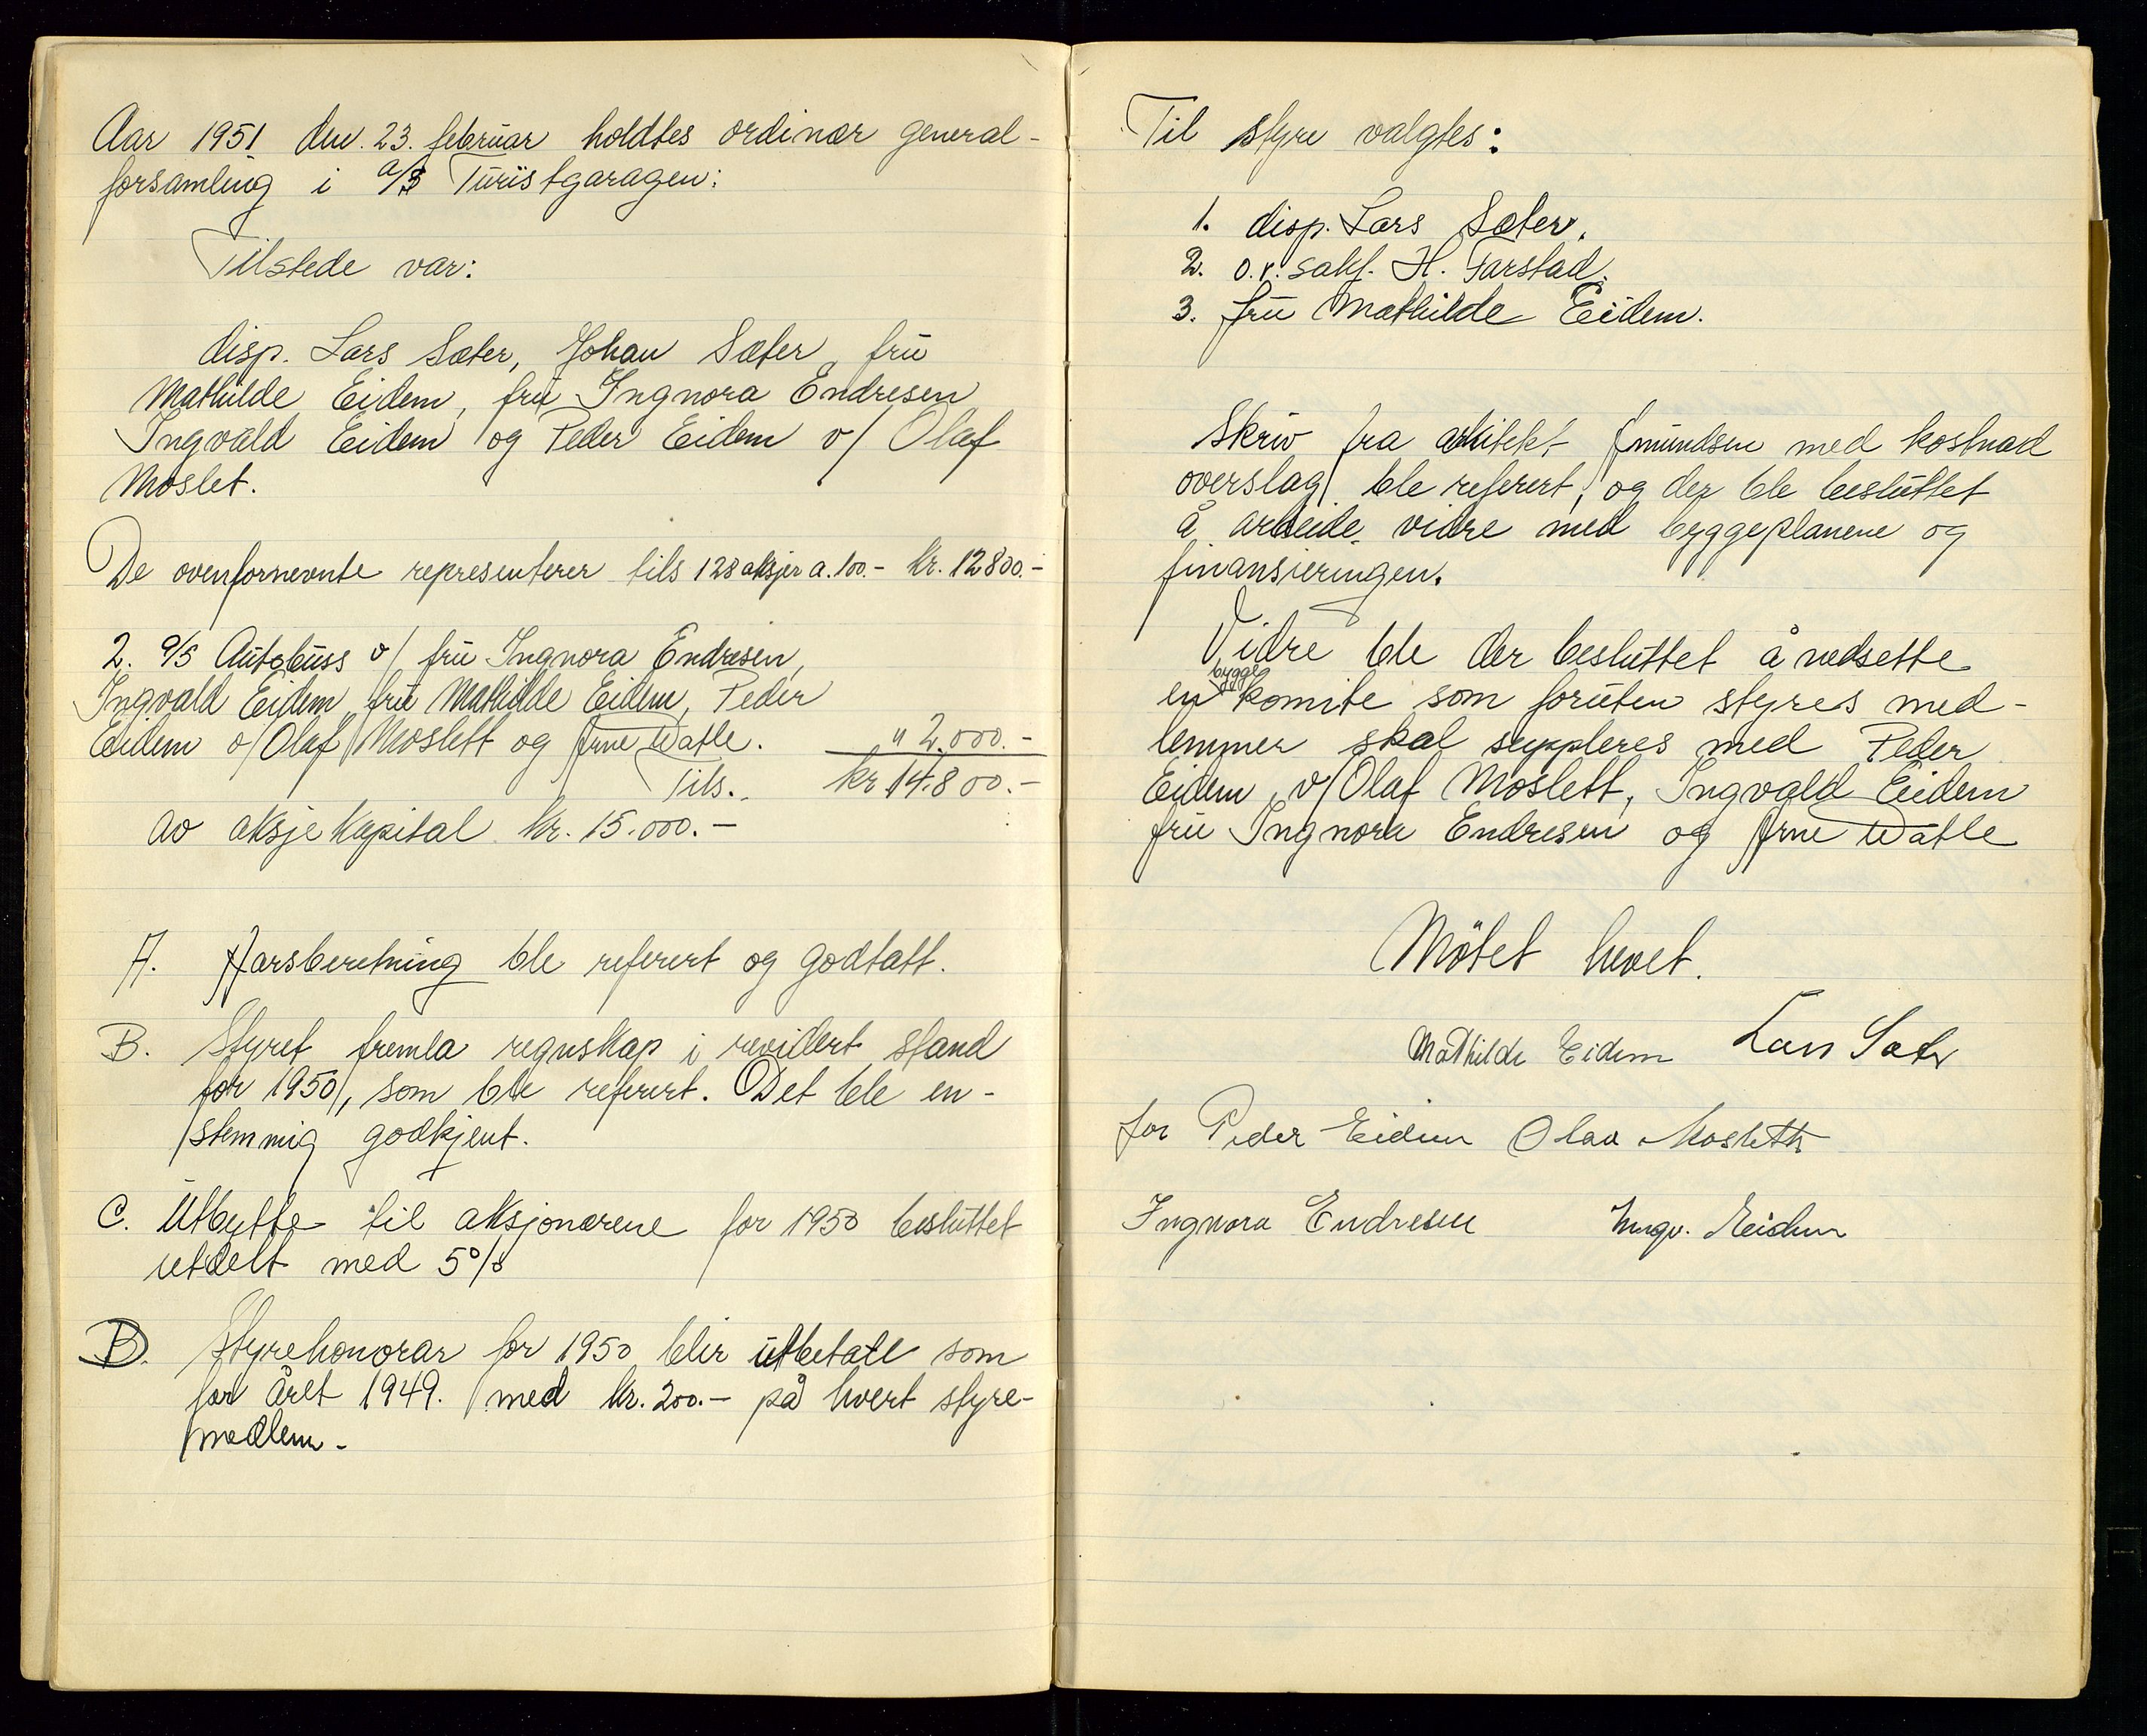 Aar 1951 den. 23. februar holdtes ordinær general-
forsamling i a/s Turistgaragen:
Tilstede var:
disp. Lars Sæter, Johan Sæter, fru
Mathilde Eidem, fru Ingnora Endresen
Ingvald Eidem og Peder Eidem v/ Olaf
Moslet.
De ovenfornevnte representerer tils 128 aksjer a. 100.- kr. 12800.-
2. a/s Autobuss v/ fru Ingnora Endresen,
Ingvald Eidem, fru Mathilde Eidem, Peder
Eidem v/ Olaf Moslett og Arne Watle. " 2.000.-
Tils. kr 14.800.-
av aksjekapital kr. 15.000.-
A. Aarsberetning ble referert og godtatt.
B. Styret fremla regnskap i revidert stand
for 1950, som ble referert. Det ble en-
stemmig godkjent.
C. Utbytte til aksjonærene for 1950 besluttet
utdelt med 5%
D. Styrehonorar for 1950 blir utbetalt som
for året 1949. med kr. 200.- på hvert styre-
medlem.-
Til styre valgtes:
1. disp. Lars Sæter.
2. o.r. sakf. H. Farstad.
3. fru Mathilde Eidem.
Skriv fra arkitekt Amundsen med kostnad
overslag ble referert, og der ble besluttet
å arbeide vidre med byggeplanene og
finansieringen.
Vidre ble der besluttet å nedsette
en bygge komite som foruten styres med-
lemmer skal suppleres med Peder
Eidem v/ Olaf Moslett, Ingvald Eidem
fru Ingnora Endresen og Arne Watle
Mötet hevet.
Mathilde Eidem Lars Sæter
for Peder Eidem Olav Mosleth
Ingnora Endresen Ingv. Eidem